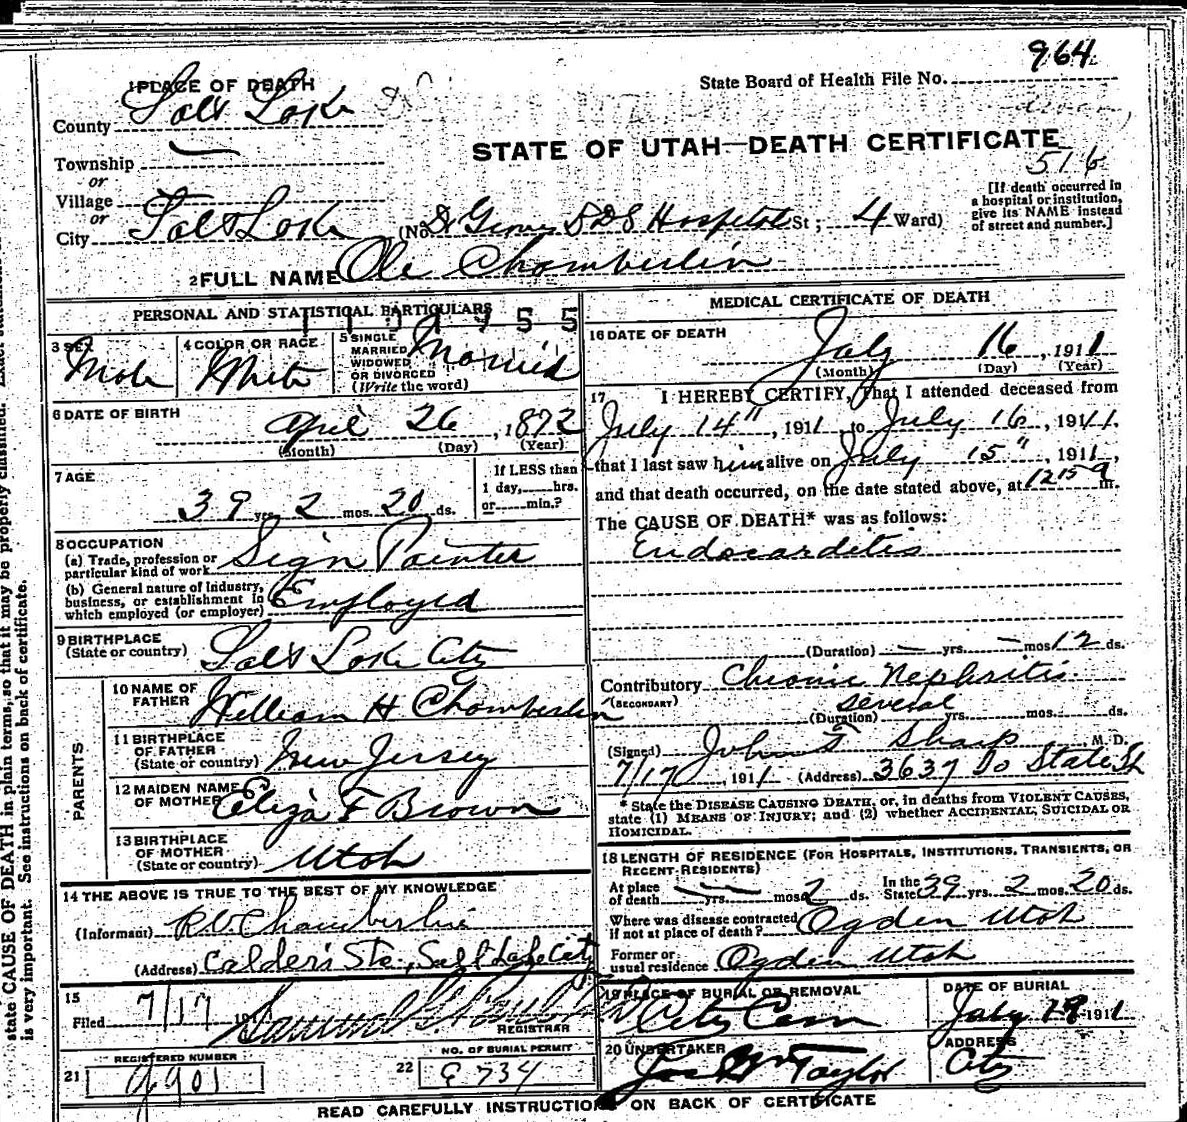 964
1 PLACE OF DEATH
State Board of Health File No.
County Salt Lake
STATE OF UTAH—DEATH CERTIFICATE
516
Township —
or
Village
or
City Salt Lake (No. Dr Groves LDS Hospital St; 4 Ward)
[If death occurred in
a hospital or institution,
give its NAME instead
of street and number.]
2 FULL NAME Ole Chamberlin
PERSONAL AND STATISTICAL PARTICULARS
3 SEX Male
4 COLOR OR RACE White
5 SINGLE
MARRIED
WIDOWED
OR DIVORCED
(Write the word) Married
6 DATE OF BIRTH
April 26, 1872
(Month) (Day) (Year)
7 AGE
39 yrs. 2 mos. 20 ds.
If LESS than
1 day, hrs.
or min.?
8 OCCUPATION
(a) Trade, profession or
particular kind of work Sign Painter
(b) General nature of industry,
business, or establishment in
which employed (or employer) Employed
9 BIRTHPLACE
(State or country) Salt Lake City
PARENTS
10 NAME OF
FATHER William H Chamberlin
11 BIRTHPLACE
OF FATHER
(State or country) New Jersey
12 MAIDEN NAME
OF MOTHER Eliza F Brown
13 BIRTHPLACE
OF MOTHER
(State or country) Utah
14 THE ABOVE IS TRUE TO THE BEST OF MY KNOWLEDGE
(Informant) R.V. Chamberlin
(Address) Calder's Sta., Salt Lake City
15
Filed 7/17 191
REGISTRAR
REGISTERED NUMBER
21
NO. OF BURIAL PERMIT
22
MEDICAL CERTIFICATE OF DEATH
16 DATE OF DEATH
July 16, 1911
(Month) (Day) (Year)
17 I HEREBY CERTIFY, That I attended deceased from
July 14", 1911 to July 16, 1911,
that I last saw him alive on July 15", 1911,
and that death occurred, on the date stated above, at 12 15 a m.
The CAUSE OF DEATH* was as follows:
Endocarditis
(Duration) — yrs. — mos. 12 ds.
Contributory Chronic Nephritis.
(SECONDARY)
several
(Duration) yrs. mos. ds.
(Signed) John F Sharp M. D.
7/17, 1911 (Address) 3637 So State St
* State the DISEASE CAUSING DEATH, or, in deaths from VIOLENT CAUSES,
state (1) MEANS OF INJURY; and (2) whether ACCIDENTAL, SUICIDAL OR
HOMICIDAL.
18 LENGTH OF RESIDENCE (FOR HOSPITALS, INSTITUTIONS, TRANSIENTS, OR
RECENT RESIDENTS)
At place
of death — yrs. — mos. 2 ds. In the
State 39 yrs. 2 mos. 20 ds.
Where was disease contracted
if not at place of death? Ogden Utah
Former or
usual residence Ogden Utah
19 PLACE OF BURIAL OR REMOVAL
City Cem
DATE OF BURIAL
July 1911
20 UNDERTAKER
Taylor
ADDRESS
City
READ CAREFULLY INSTRUCTIONS ON BACK OF CERTIFICATE
state CAUSE OF DEATH in plain terms, so that it may be properly classified.
is very important. See instructions on back of certificate.